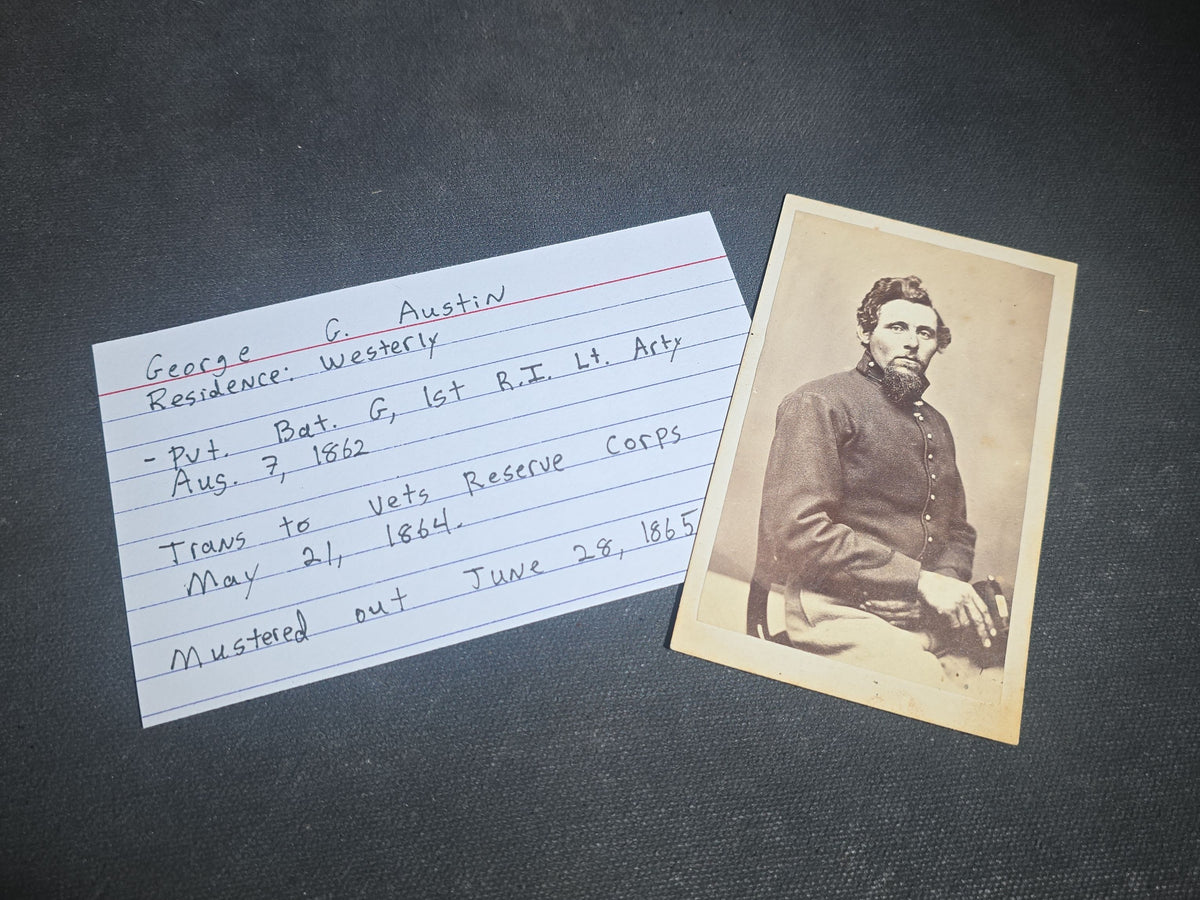 George G. Austin
Residence: Westerly
- Pvt. Bat. G, 1st R.I. Lt. Arty
Aug. 7, 1862
Trans to Vets Reserve Corps
May 21, 1864.
Mustered out June 28, 1865